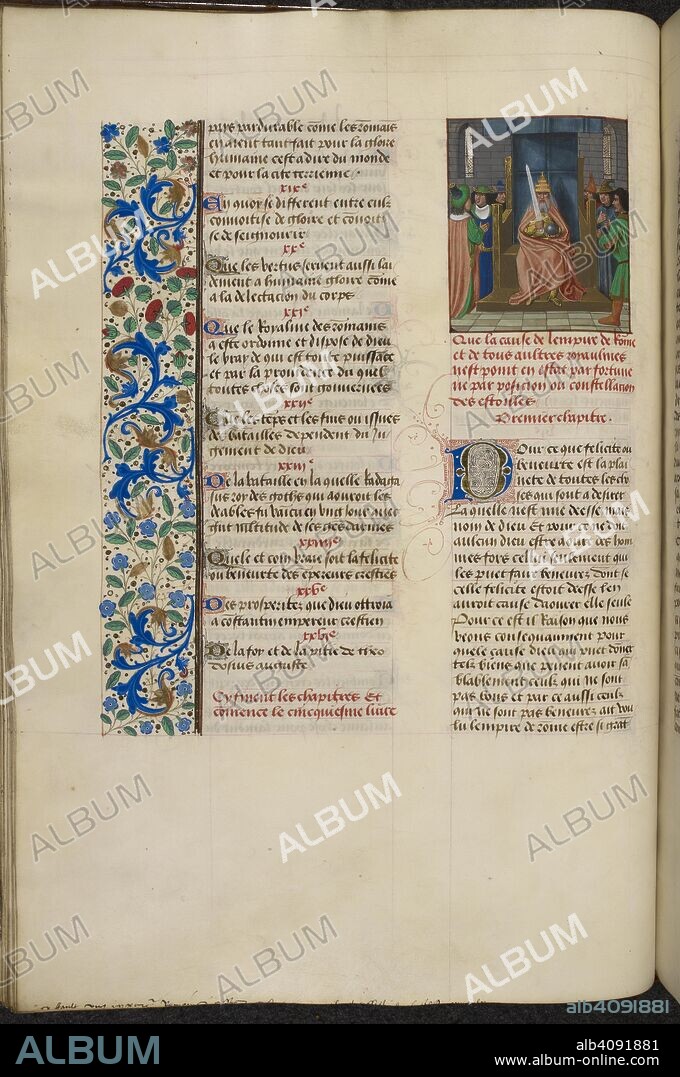 pays pardurable come les romais
en aient tant fait pour la gloire
humaine cest a dire du monde
et pour la cite terrienne .
xixe
En quoy se different entre eulx
convoitise de gloire et covoiti
se de seignourir
xxe
Que les vertus servent aussi lai
dement a humaine gloire come
a la delectacion du corps
xxie
Que le Royaulme des romains
a este ordonne et dispose de dieu
le vray de qui est toute puissace
et par la providence du quel
toutes choses sont gouvernees
xxiie
Que les teps et les fins ou issues
des batailles dependent du iu
gement de dieu
xxiiie
De la bataille en la quelle Radaga
sus roy des goths qui aouroit les
deables fu vaicu en ung iour avec
grat multitude de ses gesdarmes
xxiiiie
Quele et com vraie soit la felicite
ou beneurte des epereurs cresties
xxve
Des prosperitez que dieu ottroia
a costantin empereur crestien
xxvie
De la foy et de la pitie de theo
dosius auguste
Cy finent les chapitres Et
comence le cincquiesme livre
Que la cause de lempire de Rome
et de tous aultres royaulmes
nest point en estre par fortune
ne par posicion ou constellacion
des estoilles
Premier chapitre .
Pour ce que felicite ou
beneurte est la plai
nete de toutes les cho
ses qui sont a desirer
La quelle nest mie deesse mais
nom de dieu Et pour ce ne doit
aulcun dieu estre aoure des hom
mes fors celui seulement qui
les puet faire beneurez dont se
celle felicite estoit deesse len
auroit cause daourer elle seule
Pour ce est il Raison que nous
veons consequamment pour
quele cause dieu qui puet donner
telz biens que pevent avoir sa
blablement ceulx qui ne sont
pas bons et par ce aussi ceulx
qui ne sont pas beneurez ait vou
lu lempire de rome estre si grat
ALBUM
alb4091881
ALBUM
alb4091881
www.album-online.com